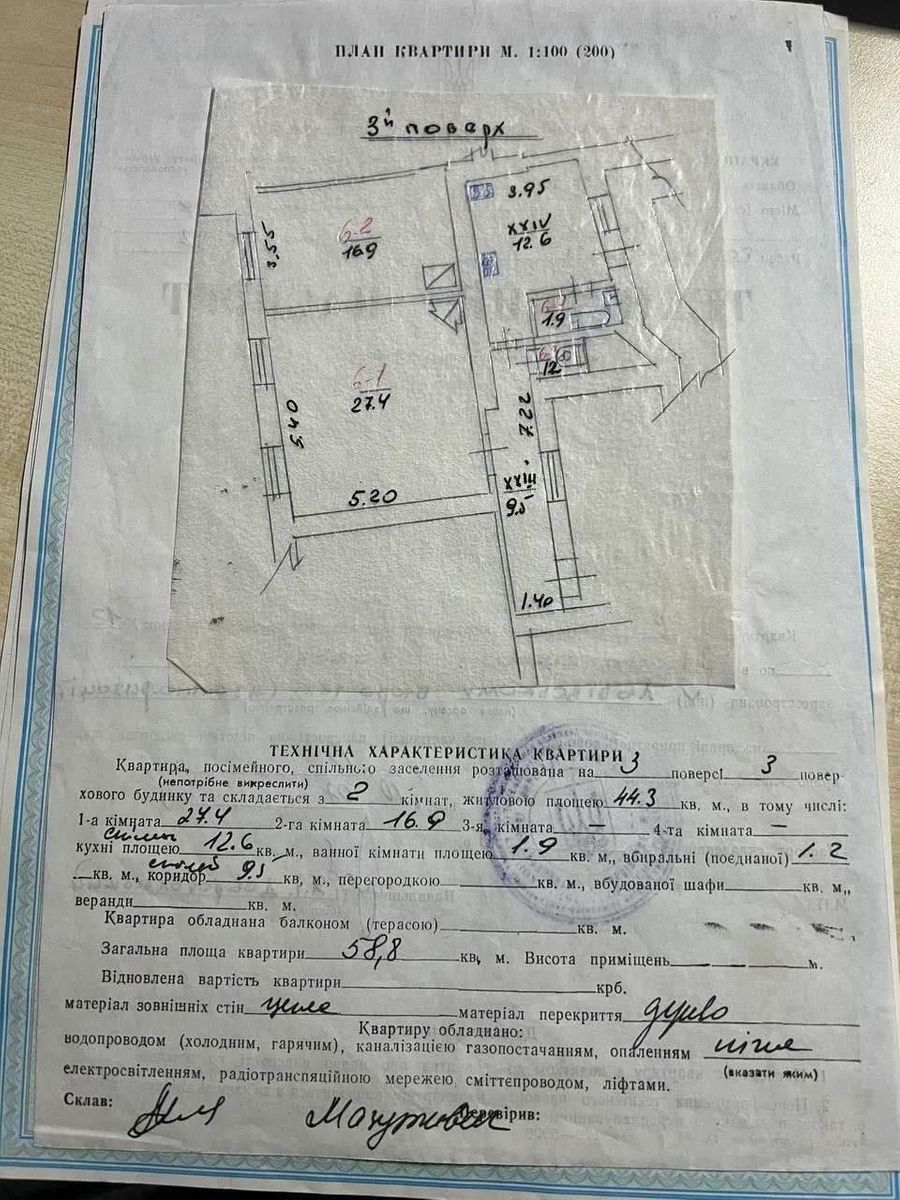 ПЛАН КВАРТИРИ М. 1:100 (200)
3й поверх
3.95
XXIV
12.6
6-2
16.9
3.55
1.9
1.2
6-1
27.4
5.40
7.22
5.20
XXIII
9.5
1.40
ТЕХНІЧНА ХАРАКТЕРИСТИКА КВАРТИРИ
Квартира, посімейного, спільного заселення розташована на 3 поверсі 3 повер-
(непотрібне викреслити)
хового будинку та складається з 2 кімнат, житловою площею 44.3 кв. м., в тому числі:
1-а кімната 27.4 2-га кімната 16.9 3-я кімната — 4-та кімната —
спільн
кухні площею 12.6 кв. м., ванної кімнати площею 1.9 кв. м,, вбиральні (поєднаної) 1.2
кв. м., коридор 9.5 кв, м., перегородкою кв. м., вбудованої шафи кв. м,,
веранди кв. м.
Квартира обладнана балконом (терасою) кв. м.
Загальна площа квартири 58,8 кв, м. Висота приміщень м.
Відновлена вартість квартири крб.
матеріал зовнішніх стін цегла матеріал перекриття дерево
Квартиру обладнано:
водопроводом (холодним, гарячим), каналізацією газопостачанням, опаленням пічне
(вказати яким)
електросвітленням, радіотранспяційною мережею, сміттєпроводом, ліфтами.
Склав: Перевірив: